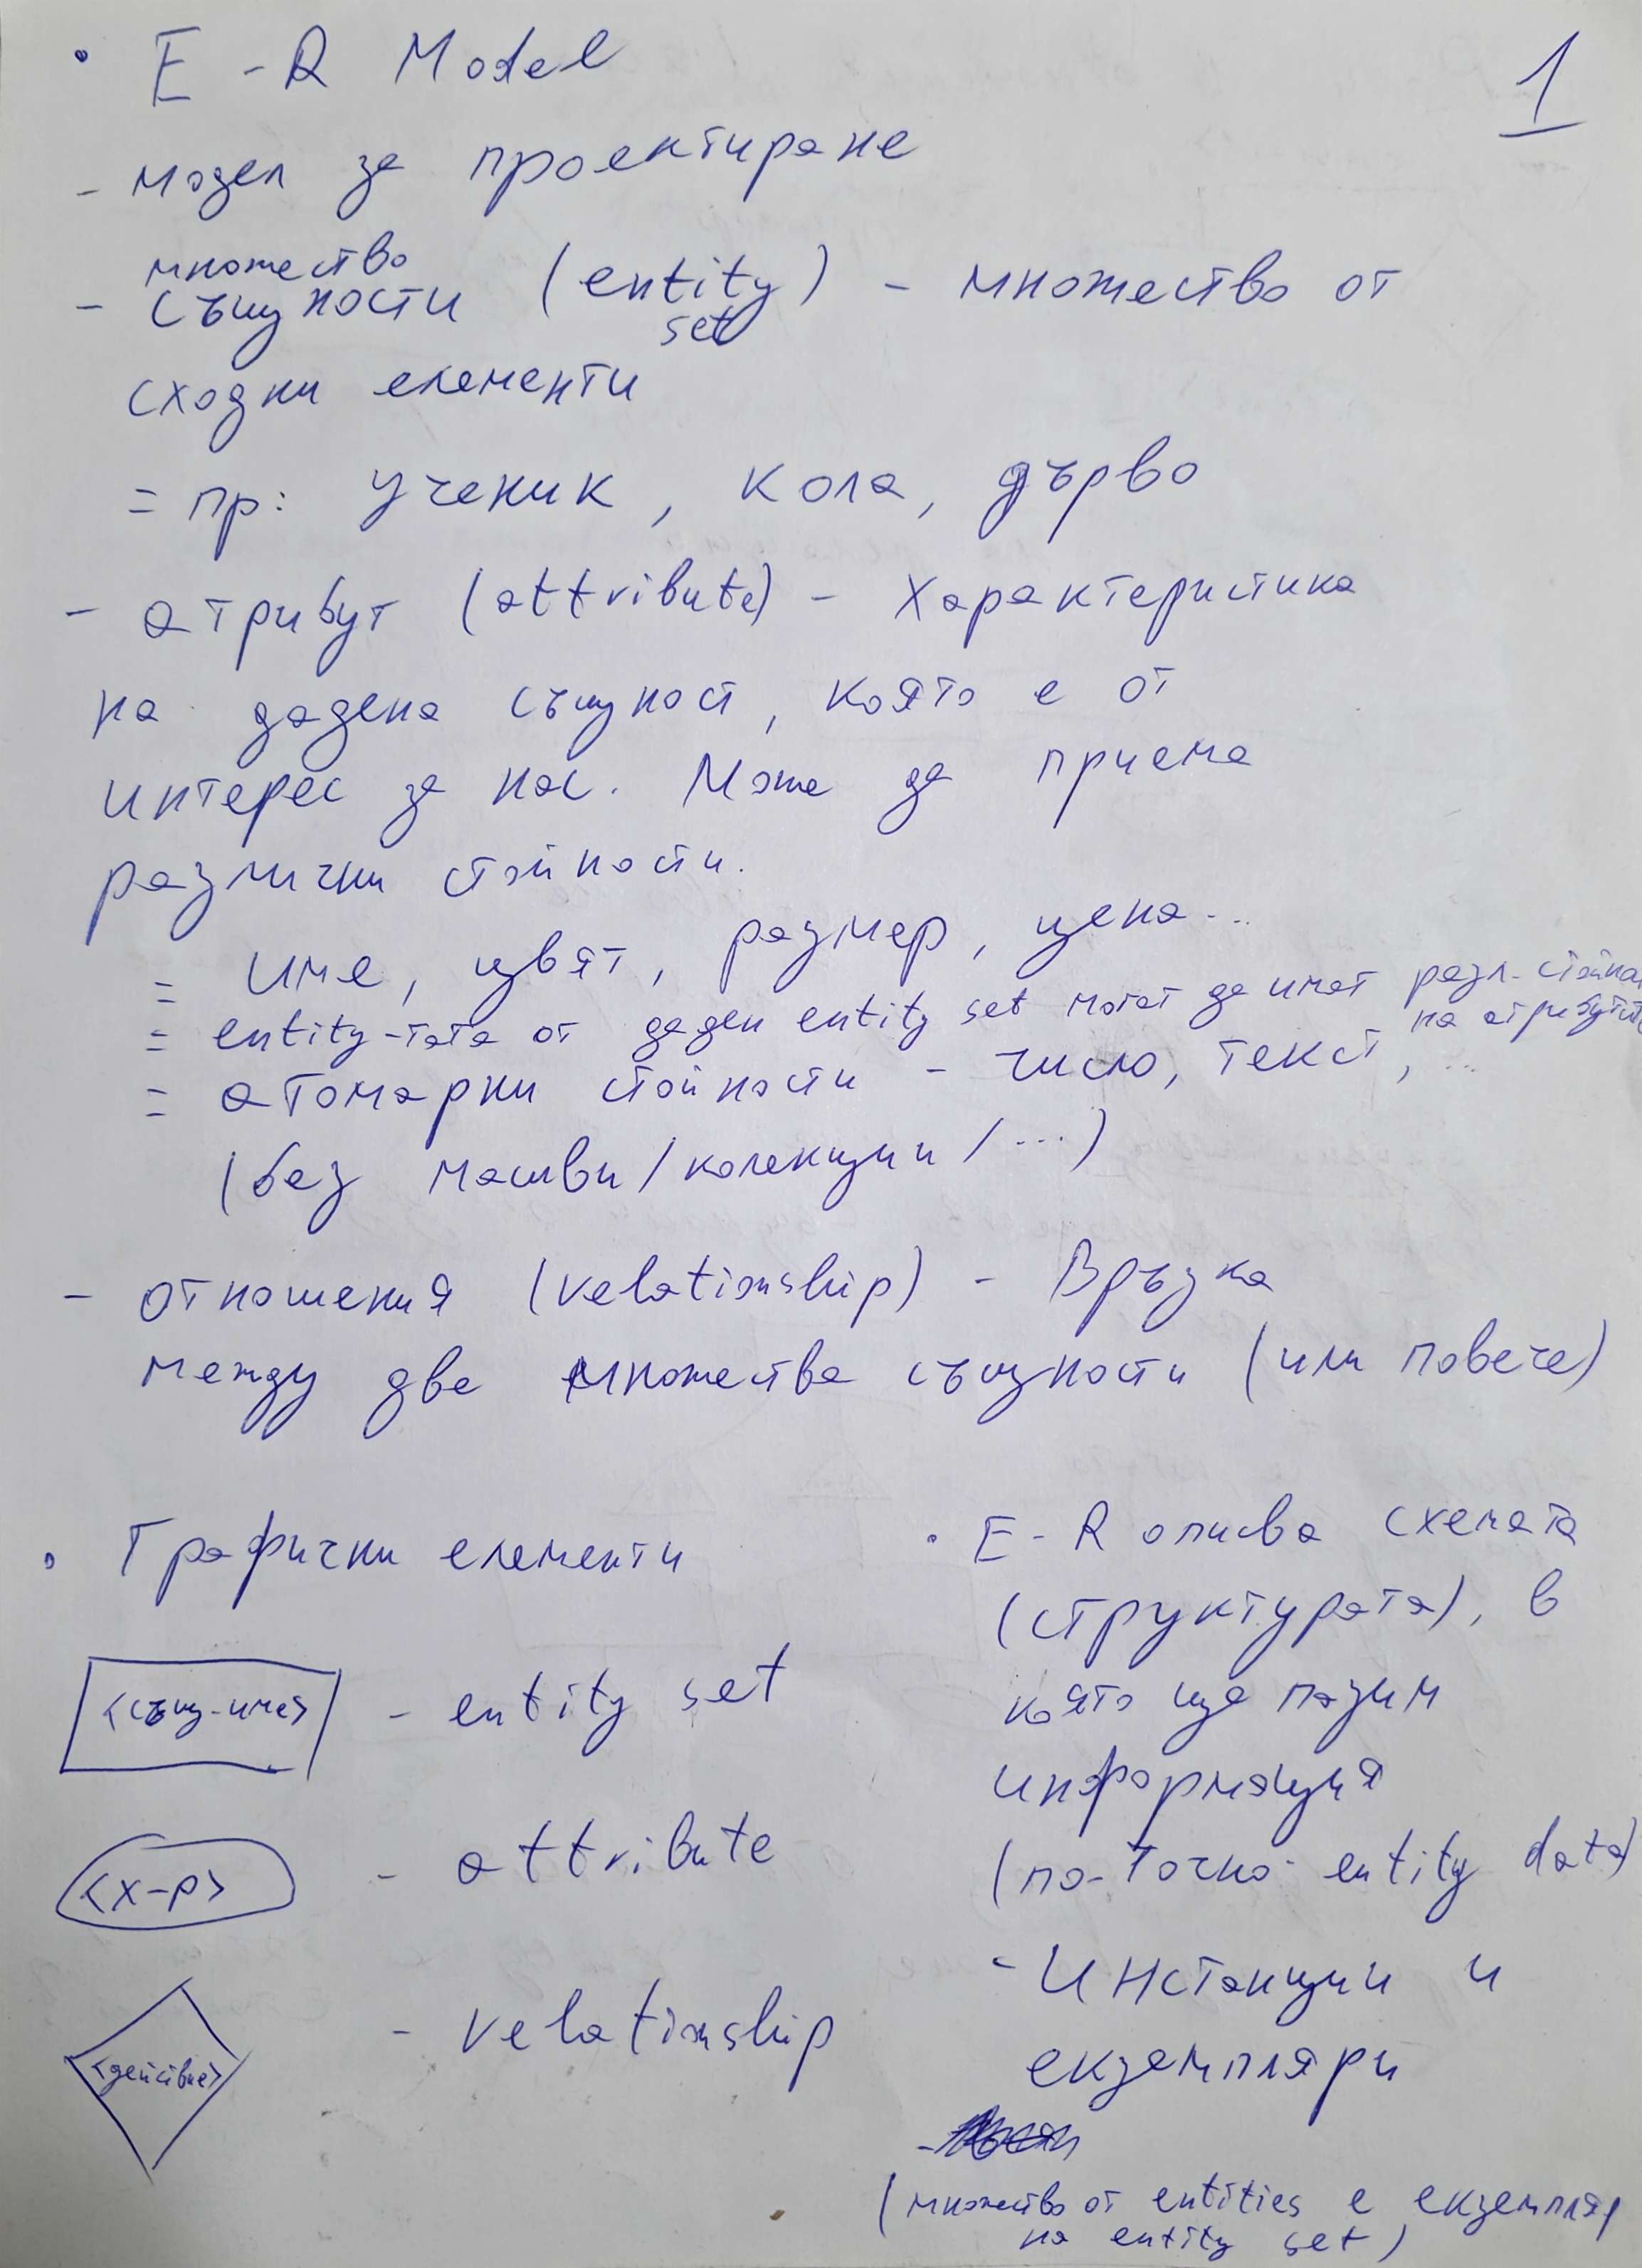 • E-R Model
1
- модел за проектиране
множество
- същности (entity) - множество от
set
сходни елементи
= пр: ученик, кола, дърво
- атрибут (attribute) - Характеристика
на дадена същност, която е от
интерес за нас. Може да приема
различни стойности.
= име, цвят, размер, цена...
= entity-тата от даден entity set могат да имат разл. стойнос
на атрибутите
= атомарни стойности - число, текст, ...
(без масиви/колекции/...)
- отношения (relationship) - Връзка
между две множества същности (или повече)
• Графични елементи
<същ-име> - entity set
<х-р> - attribute
<действие> - relationship
• E-R описва схемата
(структурата), в
която ще пазим
информация
(по-точно entity data)
- Инстанции и
екземпляри
(множество от entities е екземпляр
на entity set)